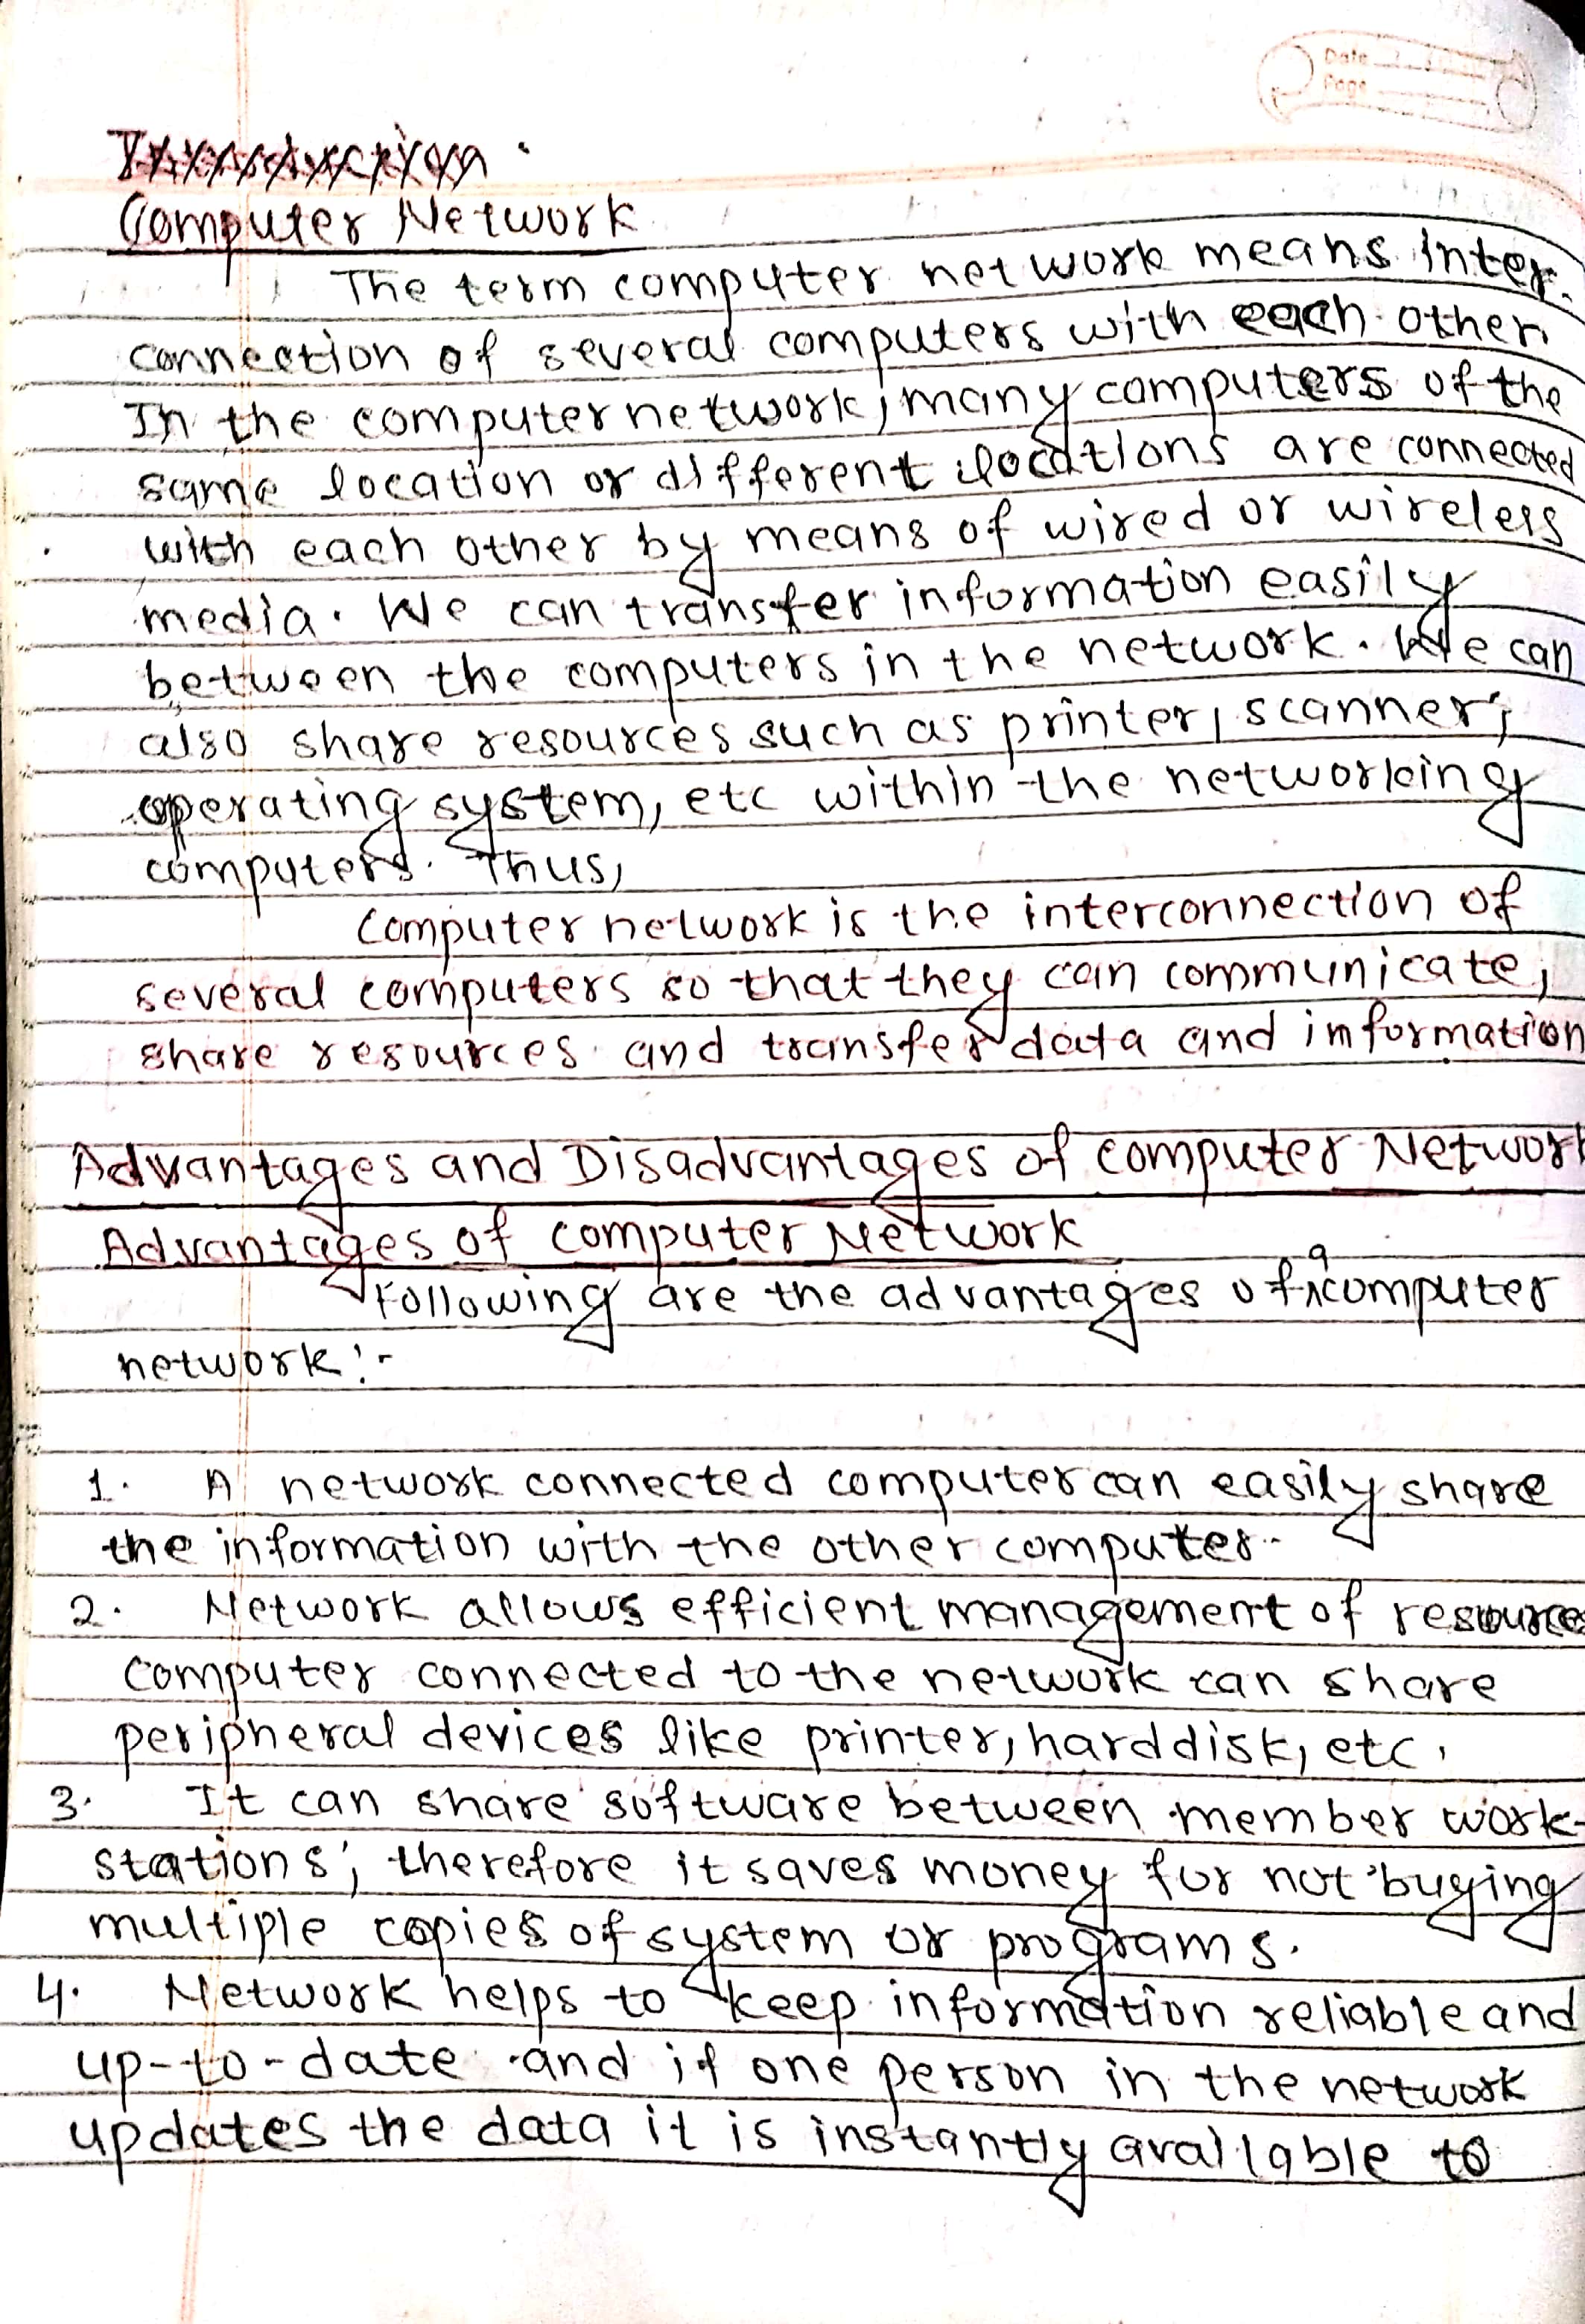 Date
Page
Introduction
Computer Network
The term computer network means inter-
connection of several computers with each other
In the computer network, many computers of the
same location or different locations are connected
with each other by means of wired or wireless
media. We can transfer information easily
between the computers in the network. We can
also share resources such as printer, scanner,
operating system, etc within the networking
computers. Thus,
Computer network is the interconnection of
several computers so that they can communicate,
share resources and transfer data and information
Advantages and Disadvantages of computer Network
Advantages of computer Network
Following are the advantages of a computer
network:-
1. A network connected computer can easily share
the information with the other computer.
2. Network allows efficient management of resources
computer connected to the network can share
peripheral devices like printer, harddisk, etc.
3. It can share software between member work-
stations, therefore it saves money for not buying
multiple copies of system or programs.
4. Network helps to keep information reliable and
up-to-date and if one person in the network
updates the data it is instantly available to